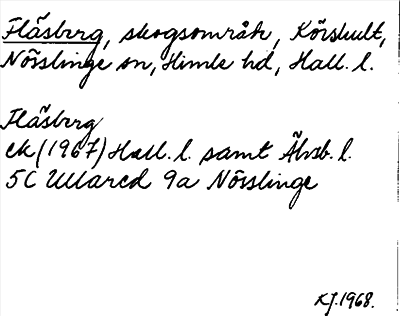 Flåsberg, skogsområde, Körshult,
Nösslinge sn, Himle hd, Hall. l.
Flåsberg
ek (1967) Hall. l. samt Älvsb. l.
5C Ullared 9a Nösslinge
KJ. 1968.